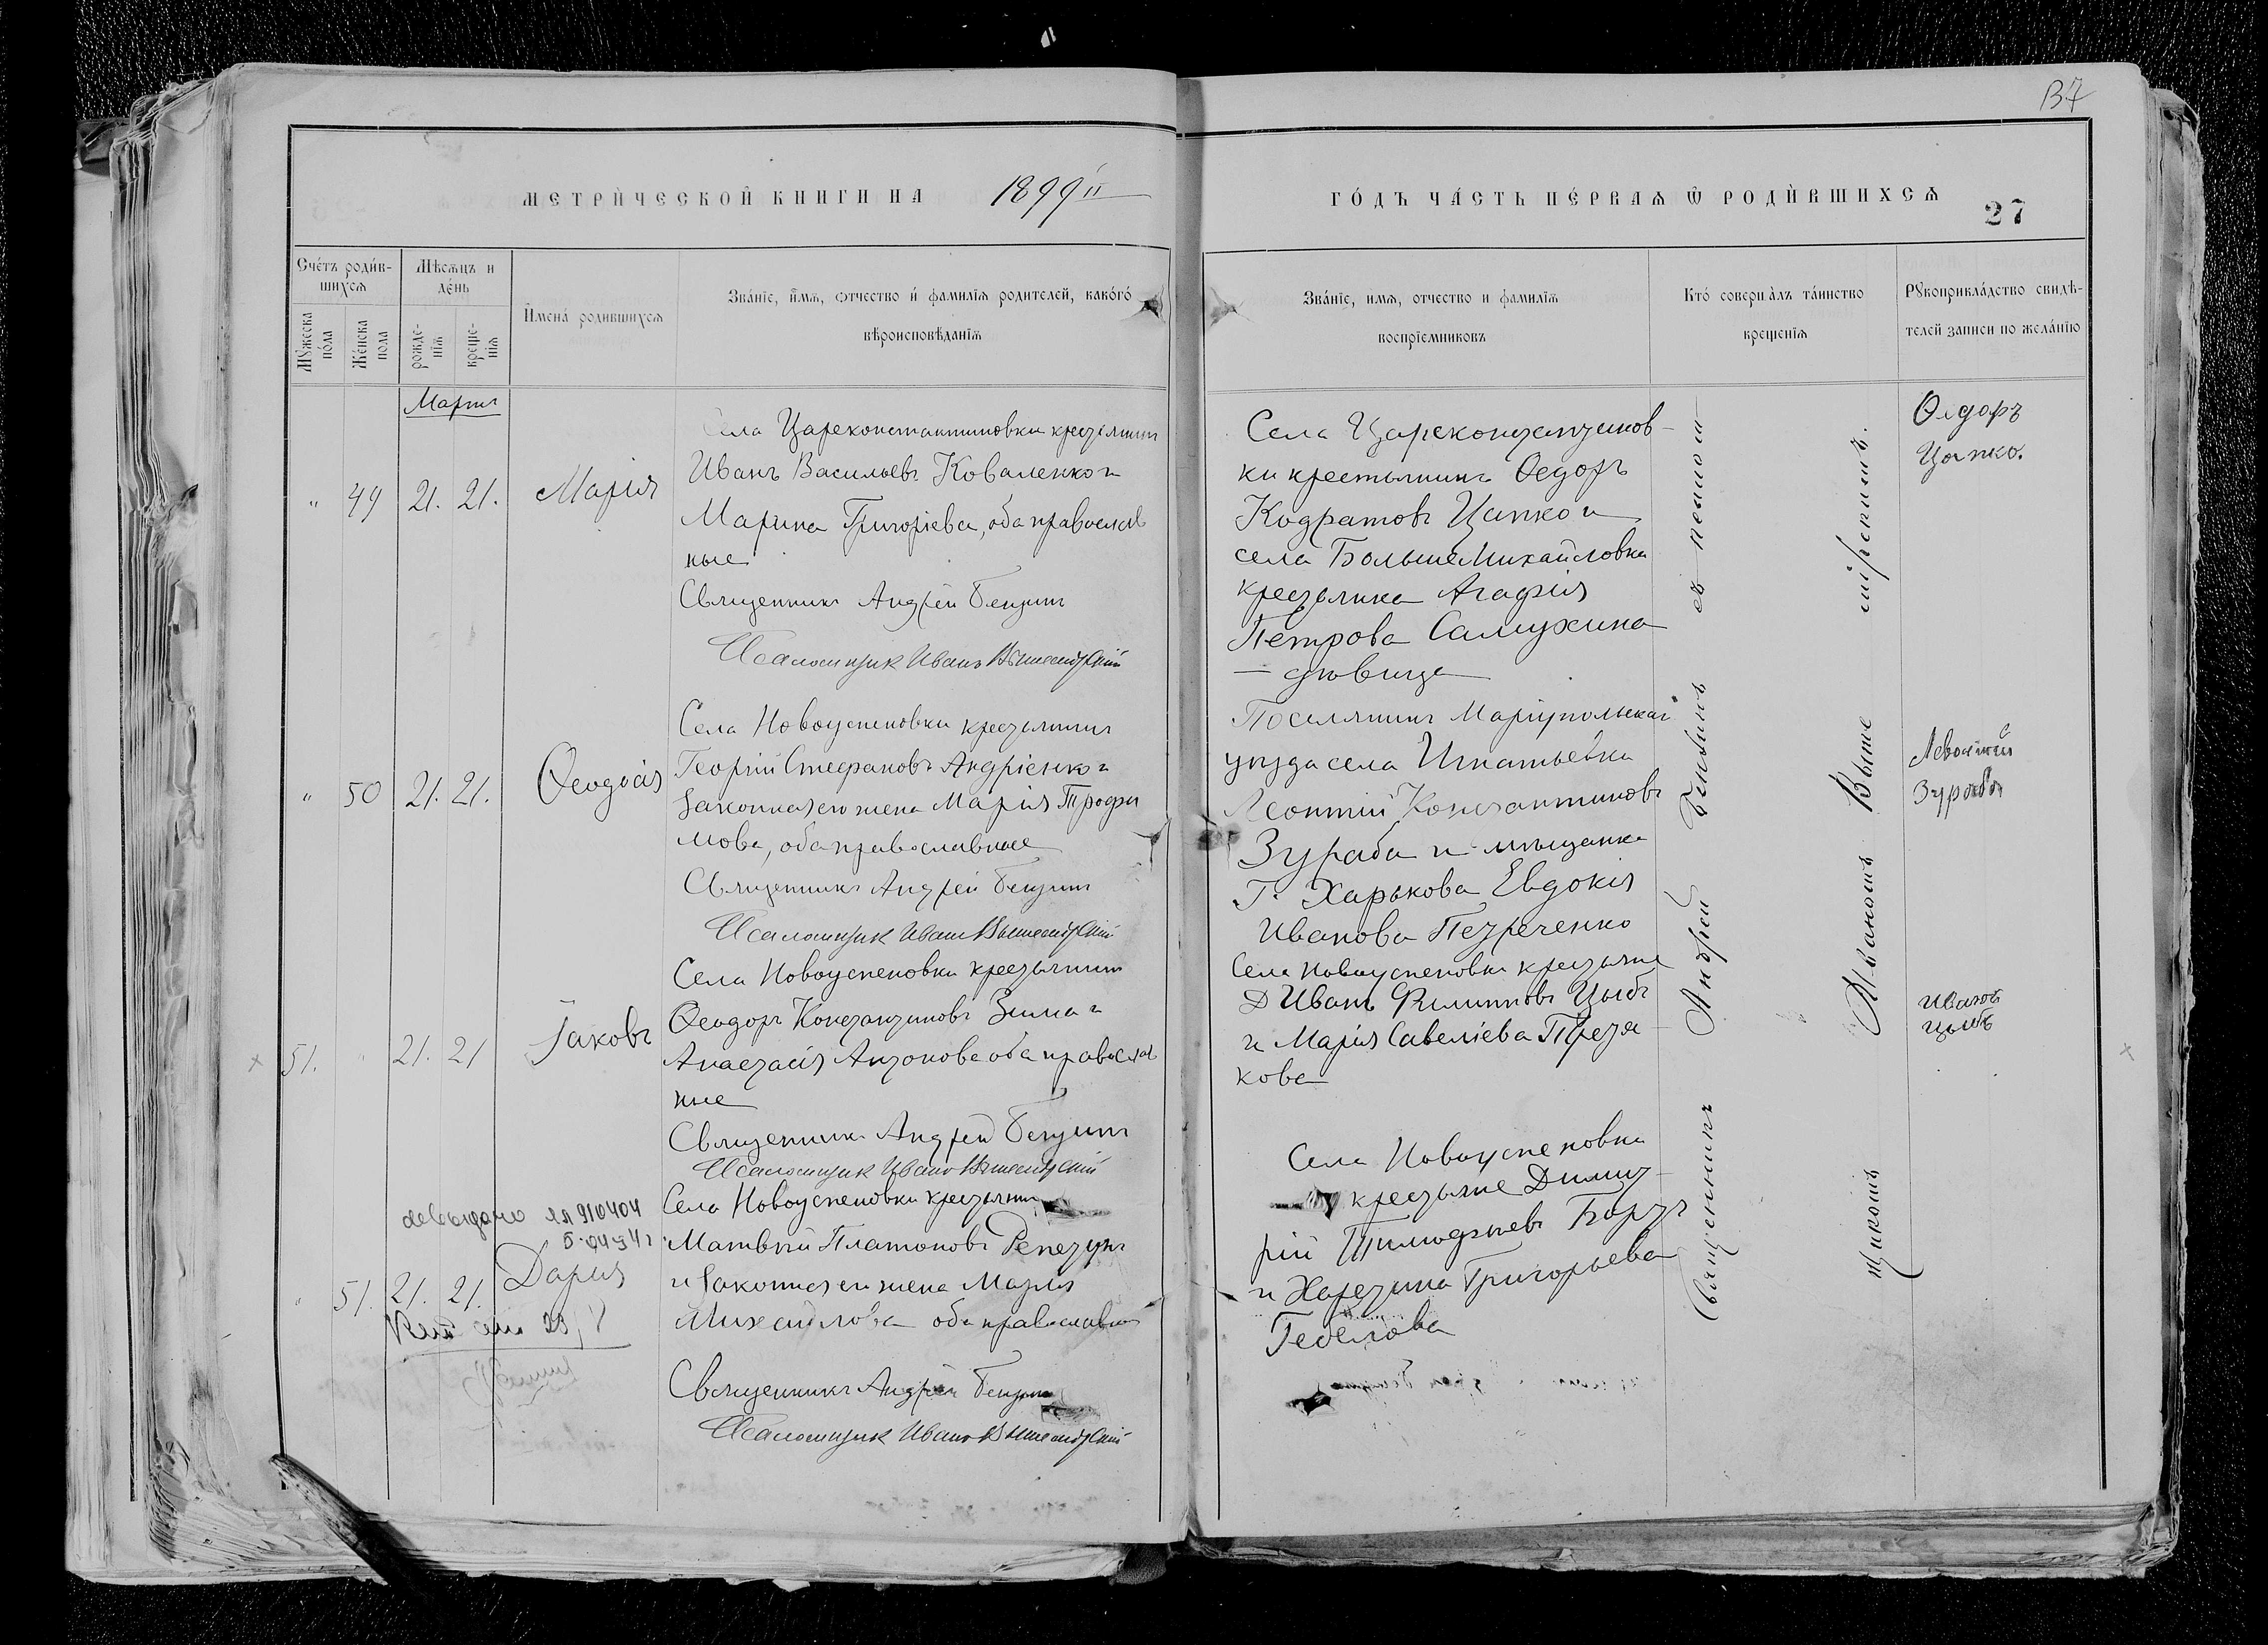 В7
МЕТРИЧЕСКОЙ КНИГИ НА 1899й
ГОДЪ ЧАСТЬ ПЕРВАѦ Ѿ РОДИВШИХСѦ
27
Счетъ родив-
шихсѧ
Мѣсѧцъ и
день
Мужеска
пола
Женска
пола
рожде-
нїѧ
креще-
нїѧ
Имена родившихсѧ
Званїе, имѧ, отчество и фамилїѧ родителей, какого
вѣроисповѣданїѧ
Званїе, имѧ, отчество и фамилїѧ
воспрїемниковъ
Кто совершалъ таинство
крещенїѧ
Рꙋкоприкладство свидѣ-
телей записи по желанїю
Мартъ
" 49 21. 21. Марія
Села Цареконстантиновки крестьянинъ
Иванъ Васильевъ Коваленко и
Марина Григоріева, оба православ
ные
Священникъ Андрей
Псаломщик Иванъ
Села Цареконстантинов-
ки крестьянинъ Ѳедоръ
Кодратовъ Цапко и
села Больше Михайловка
крестьянка Агафія
Петрова
— дѣвица
Ѳедоръ
Цапко.
" 50 21. 21. Ѳеодосія
Села Новоуспеновки крестьянинъ
Георгій Стефановъ Андріенко и
законная его жена Марія Трофи
мова, оба православные
Священникъ Андрей
Псаломщик Иванъ
Поселянинъ Маріупольскаго
уезда села Игнатьевка
Леонтій Константиновъ
Зураба и мѣщанка
Г. Харькова Евдокія
Иванова Петреченко
Зураба
51. " 21. 21 Іаковъ
Села Новоуспеновки крестьянинъ
Ѳеодоръ Константиновъ Зима и
Анастасія Антонова оба православ
ные
Священникъ Андрей
Псаломщик Иванъ
Села Новоуспеновки крестьяне
Иванъ Филипповъ Цыбъ
и Марія Савеліева
кова
Иванъ
Цыбъ
" 51. 21. 21. Дарія
Села Новоуспеновки
Матвѣй Платоновъ
и законная его жена Марія
Михайлова оба православные
Священникъ Андрей
Псаломщик Иванъ
Села Новоуспеновки
крестьяне Димит-
рій Тимофѣевъ
и Харитина Григорьева
Священникъ Андрей
Иваномъ